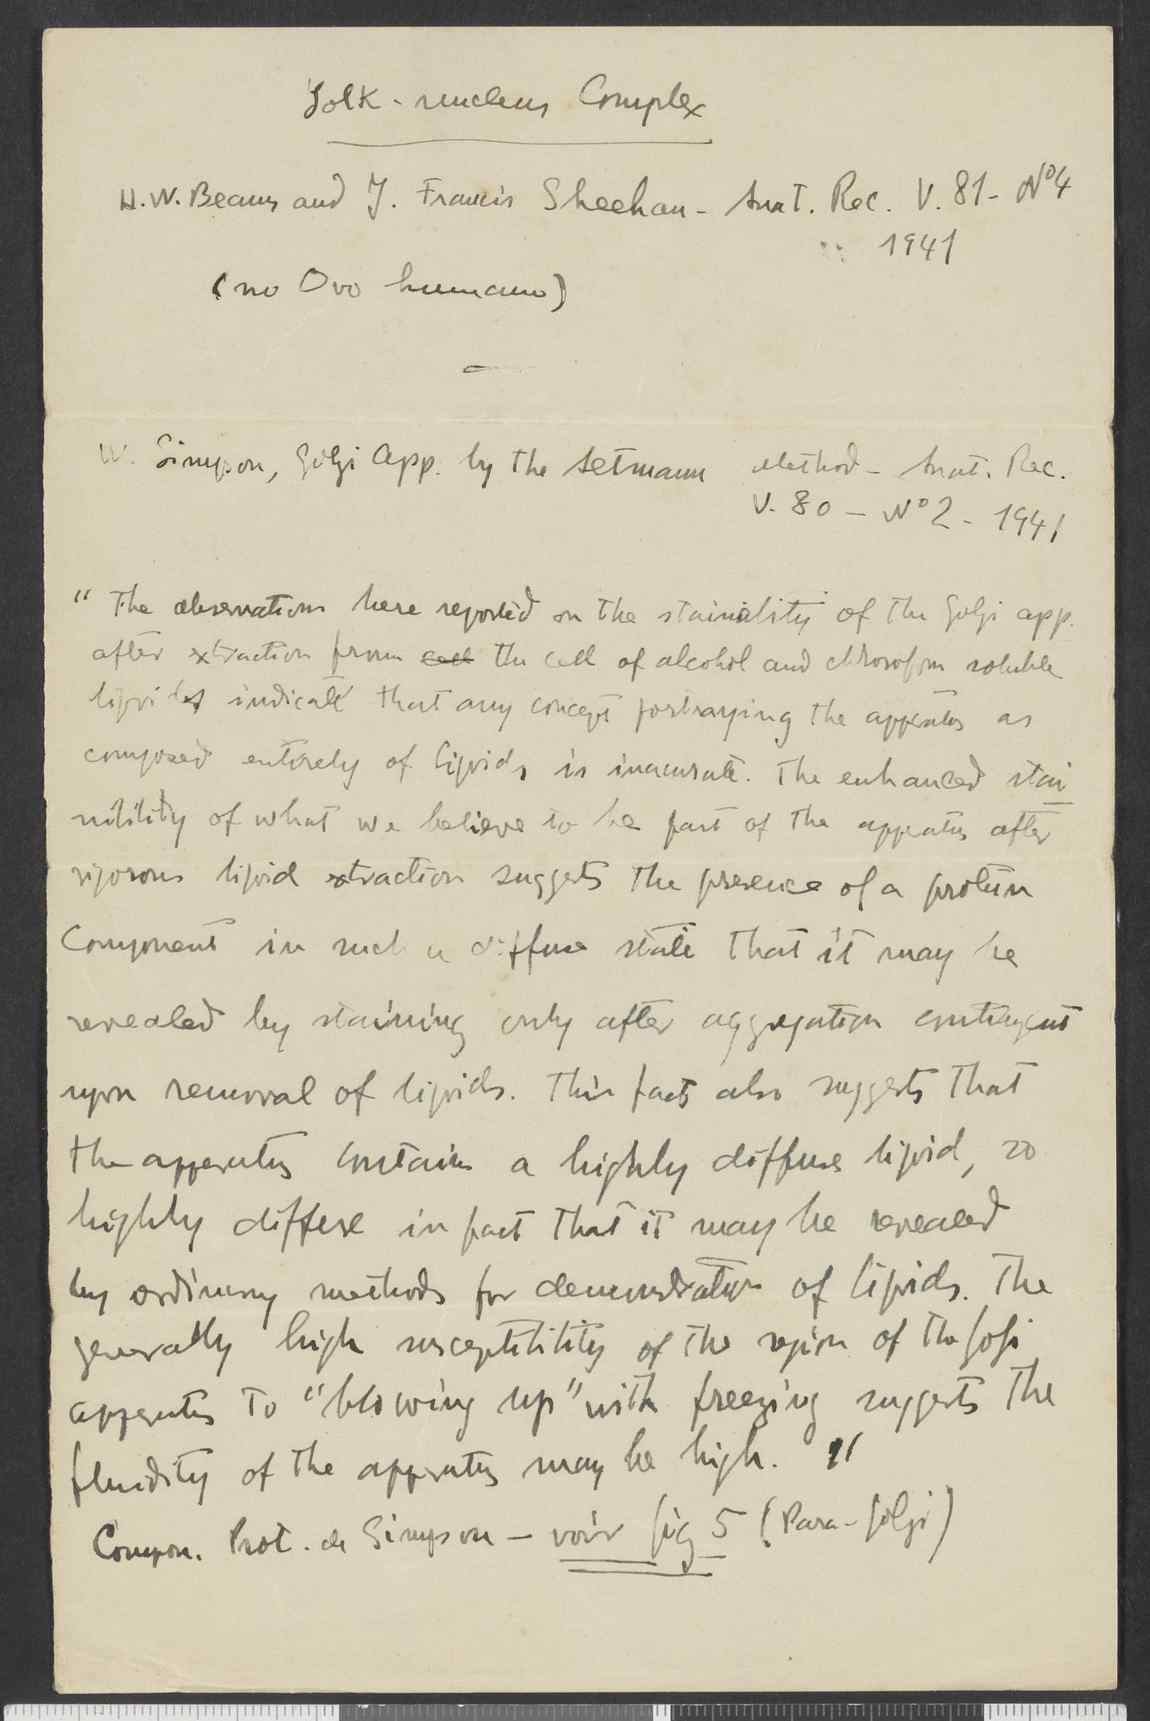 Yolk-nucleus Complex
H.W. Beams and J. Francis Sheehan - Anat. Rec. V. 81 - Nº4
1941
(no Ovo humano)
W. Simpson, Golgi App. by the Altmann Method - Anat. Rec.
V. 80 - Nº2 - 1941
" The observations here reported on the stainability of the Golgi app.
after extraction from cell the cell of alcohol and chloroform soluble
lipids indicate that any concept portraying the apparatus as
composed entirely of lipids is inacurate. The enhanced stai
nibility of what we believe to be part of the apparatus after
rigorous lipid extraction suggests the presence of a protein
Component in such a diffuse state that it may be
revealed by staining only after aggregation contingent
upon removal of lipids. This facts also suggests that
the apparatus contains a highly diffuse lipid, so
highly diffuse in fact that it may be revealed
by ordinary methods for demonstration of lipids. The
generally high susceptibility of the region of the Golgi
apparatus to "blowing up" with freezing suggests the
fluidity of the apparatus may be high. "
Compon. Prot. de Simpson - voir fig 5 (Para-Golgi)